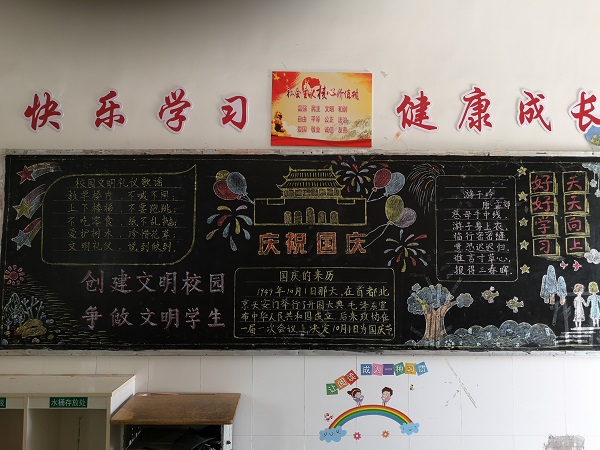 快乐学习
健康成长
社会主义核心价值观
富强 民主 文明 和谐
自由 平等 公正 法治
爱国 敬业 诚信 友善
校园文明礼仪歌谣
文明礼仪,说到做到.
创建文明校园
争做文明学生
庆祝国庆
国庆的来历
1949年10月1日那天,在首都北
京天安门举行了开国大典,毛主席宣
布中华人民共和国成立,后来政协在
一届一次会议上决定10月1日为国庆节
游子吟
唐 孟郊
慈母手中线,
游子身上衣,
临行密密缝,
意恐迟迟归,
谁言寸草心,
报得三春晖,
好好学习
天天向上
让阅读 成为一种习惯
水桶存放处